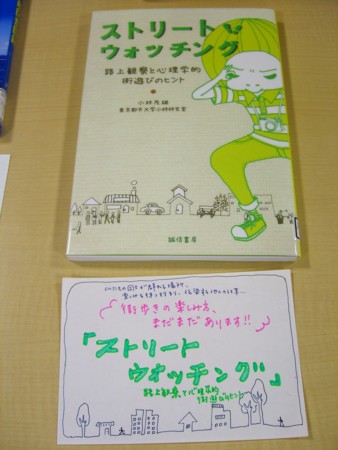 ストリート
ウォッチング
路上観察と心理学的
街遊びのヒント
小林茂雄
東京都市大学小林研究室
誠信書房
街歩きの楽しみ方、
まだまだあります!!
「ストリート
ウオッチング」
路上観察と心理学的
街遊びのヒント